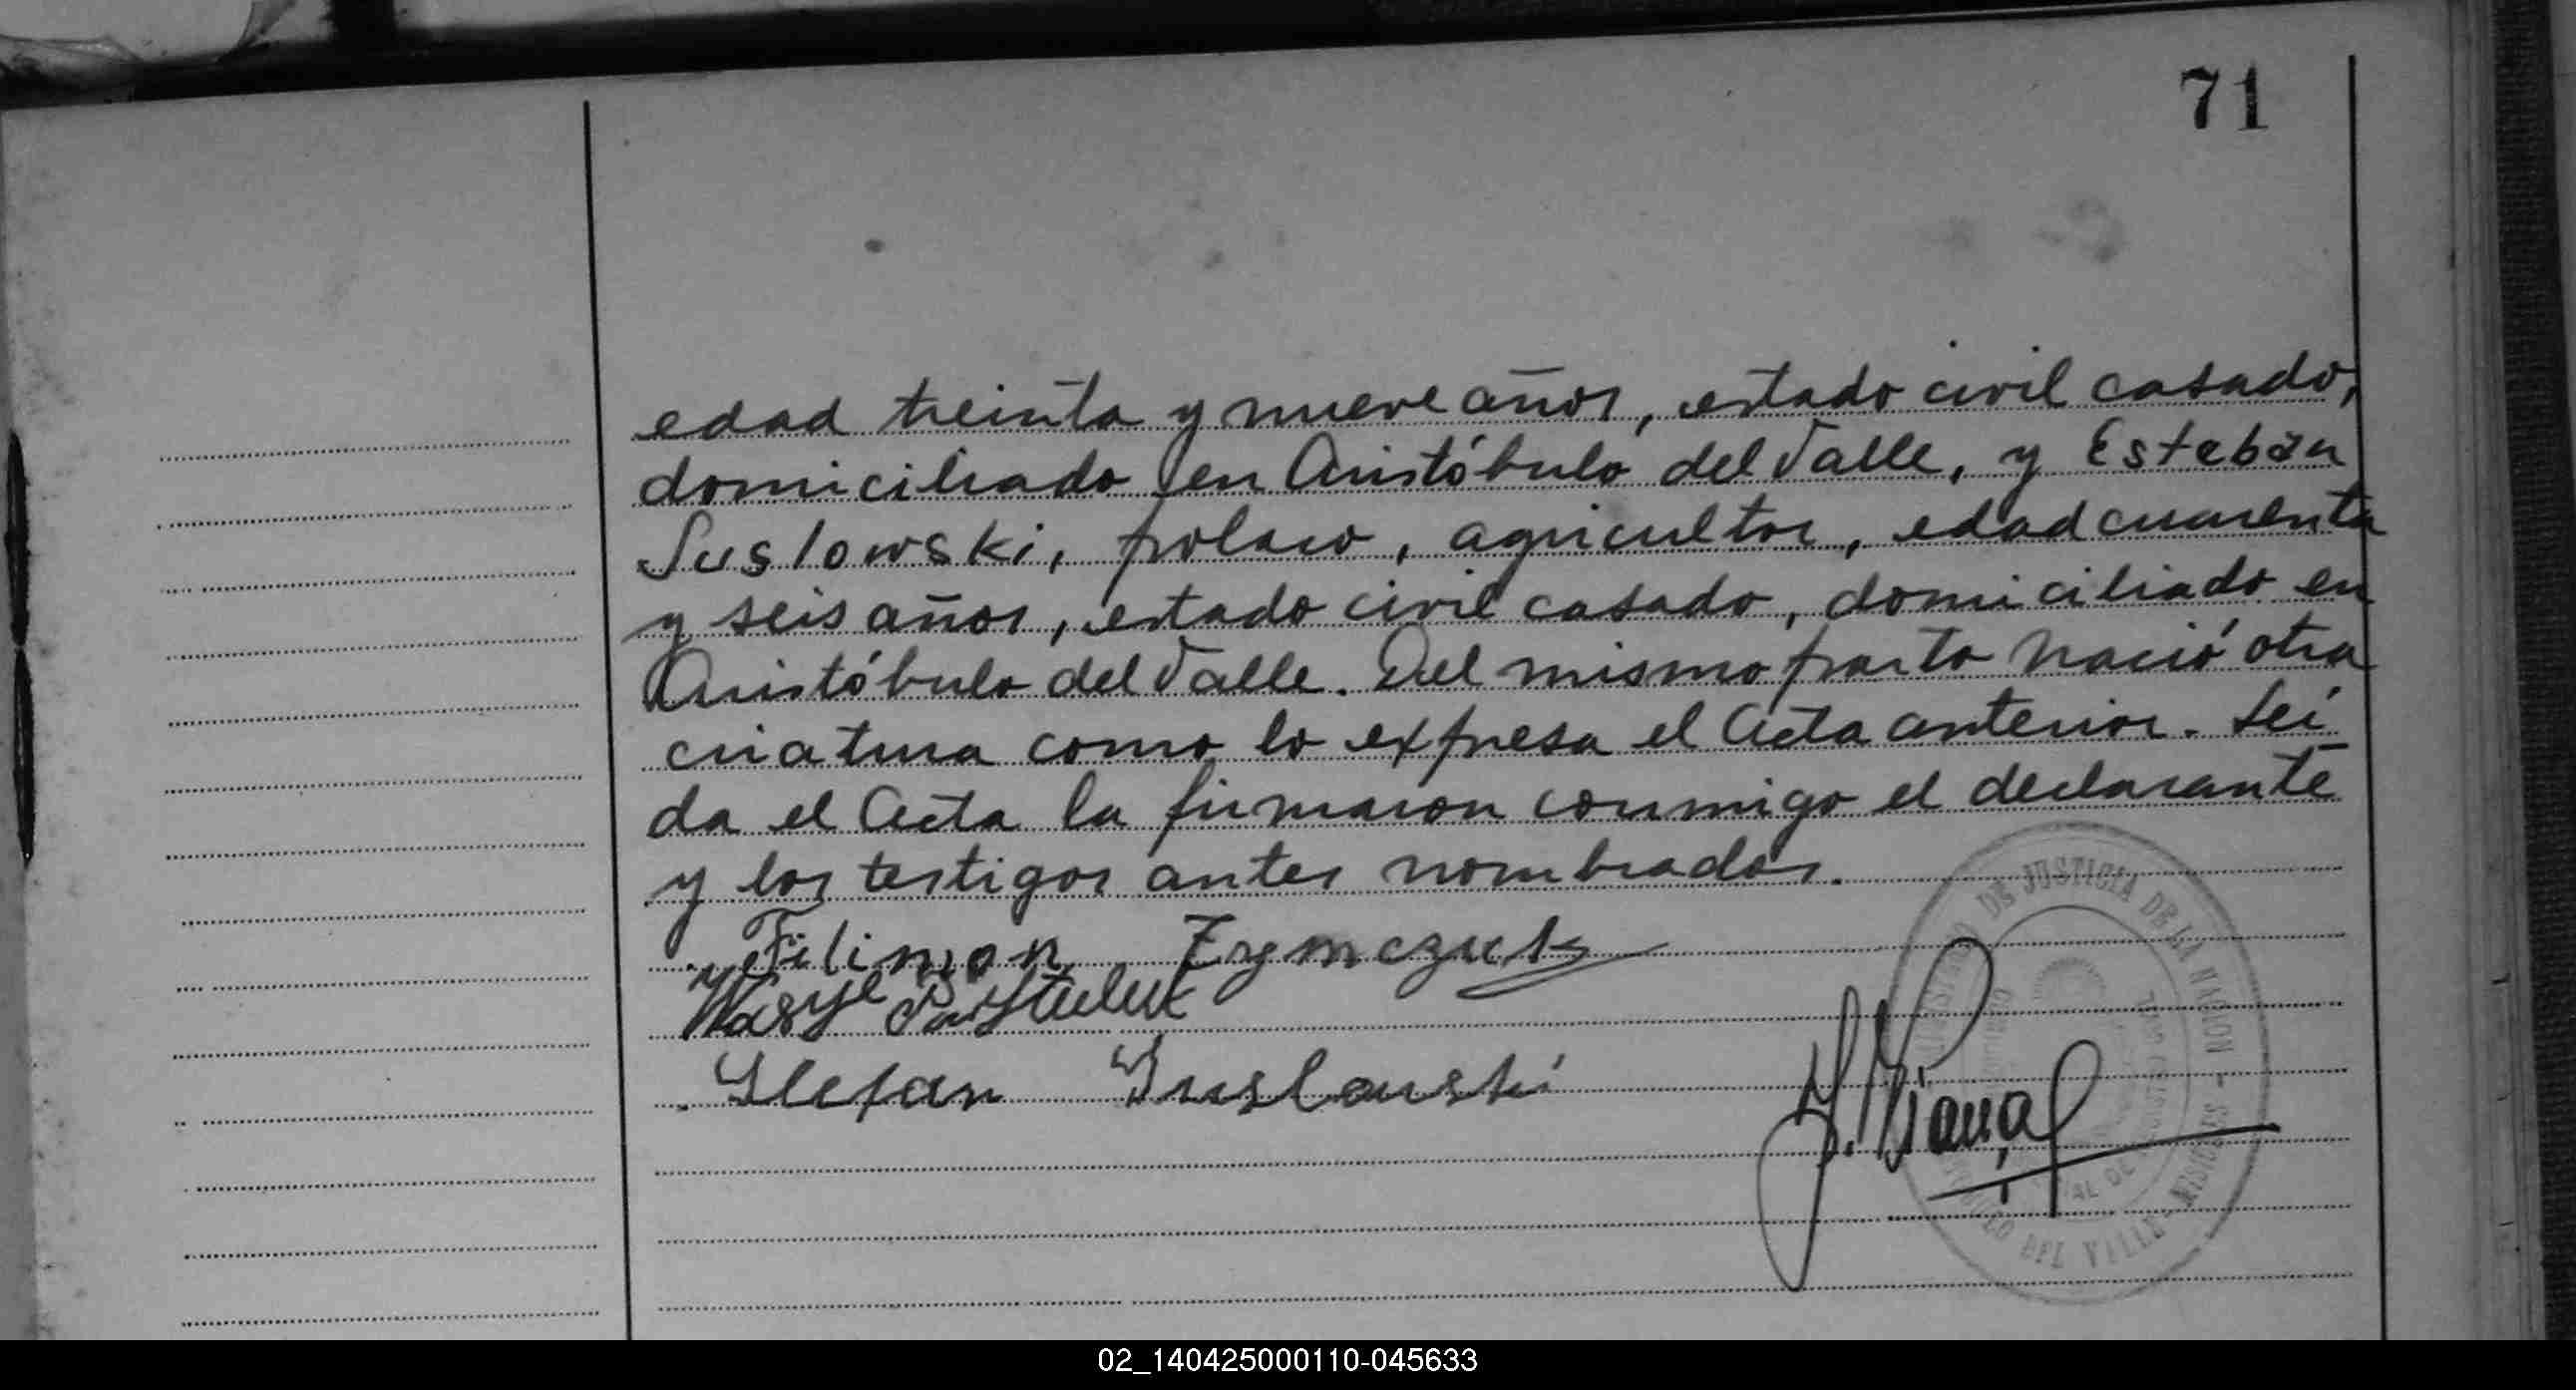 71
edad treinta y nueve años, estado civil casado,
domiciliado en Aristóbulo del Valle, y Esteban
Suslowski, polaco, agricultor, edad cuarenta
y seis años, estado civil casado, domiciliado en
Aristóbulo del Valle. Del mismo parto nació otra
criatura como lo expresa el Acta anterior. Leí
da el Acta la firmaron conmigo el declarante
y los testigos antes nombrados.
Filimon Zymczuk
Wasyl
Stefan Suslowski
DE JUSTICIA DE LA NACION - MISIONES
DEL VALLE
02_140425000110-045633